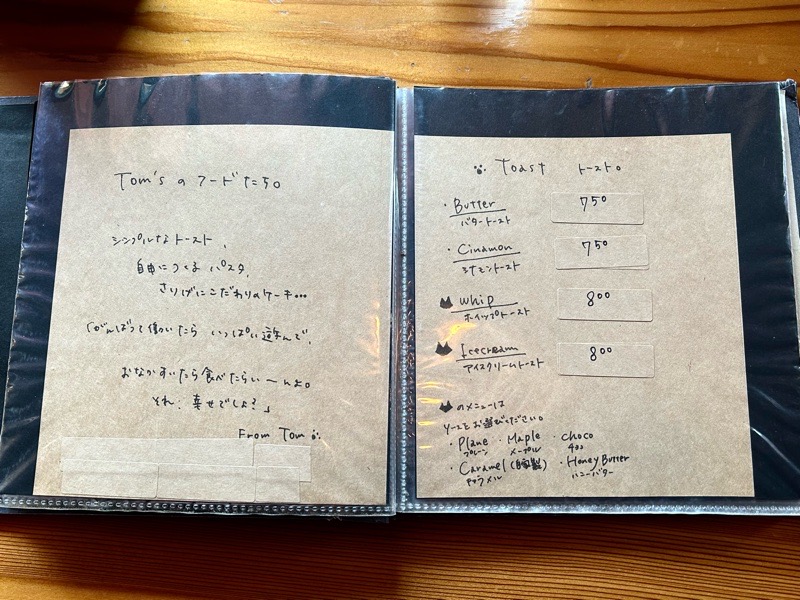 Tom'sのフードたち。
シンプルなトースト、
自由につくるパスタ、
さりげにこだわりのケーキ...
「がんばって働いたら いっぱい遊んで、
おなかすいたら食べたらい〜んよ。
それ、幸せでしょ?」
From Tom
Toast トースト。
・Butter 750
バタートースト
・Cinamon 750
シナモントースト
Whip 800
ホイップトースト
Icecream 800
アイスクリームトースト
のメニューは
ソースをお選びください。
・Plane ・Maple ・choco
プレーン メープル チョコ
・Caramel (自家製) ・Honey Butter
キャラメル ハニーバター